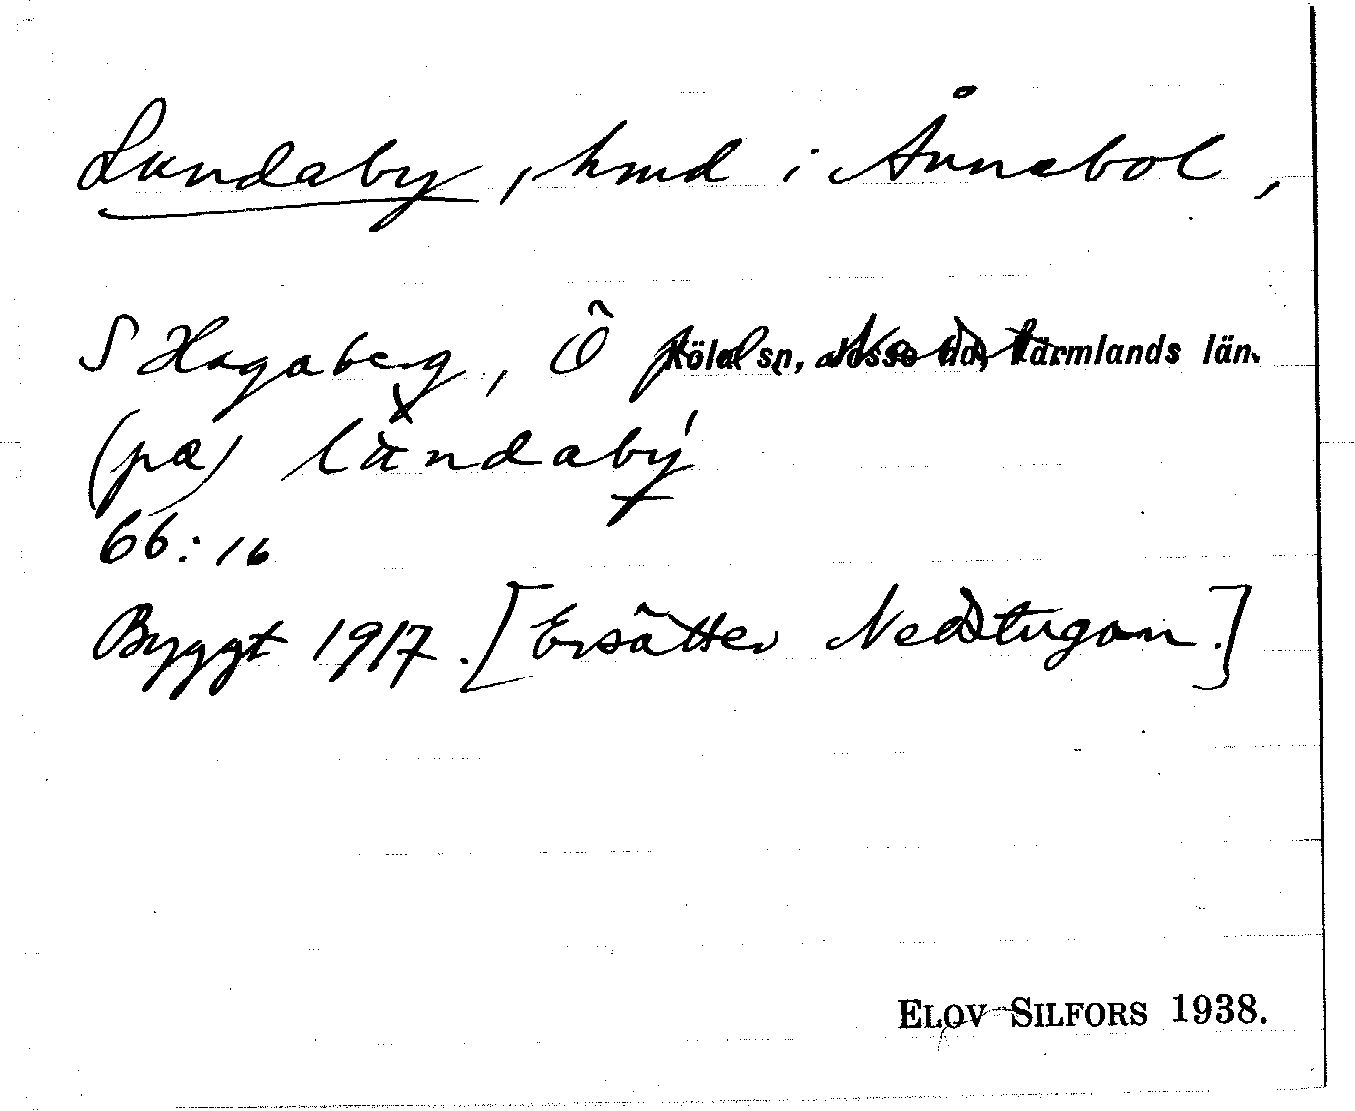 Lundaby, hmd i Ånnebol,
S Hagaberg, Ö Köla sn, Jösse hd, Värmlands län.
(pæ) lundaby
66:16
Byggt 1917. [Ersätter Nedstugan.]
ELOV SILFORS 1938.